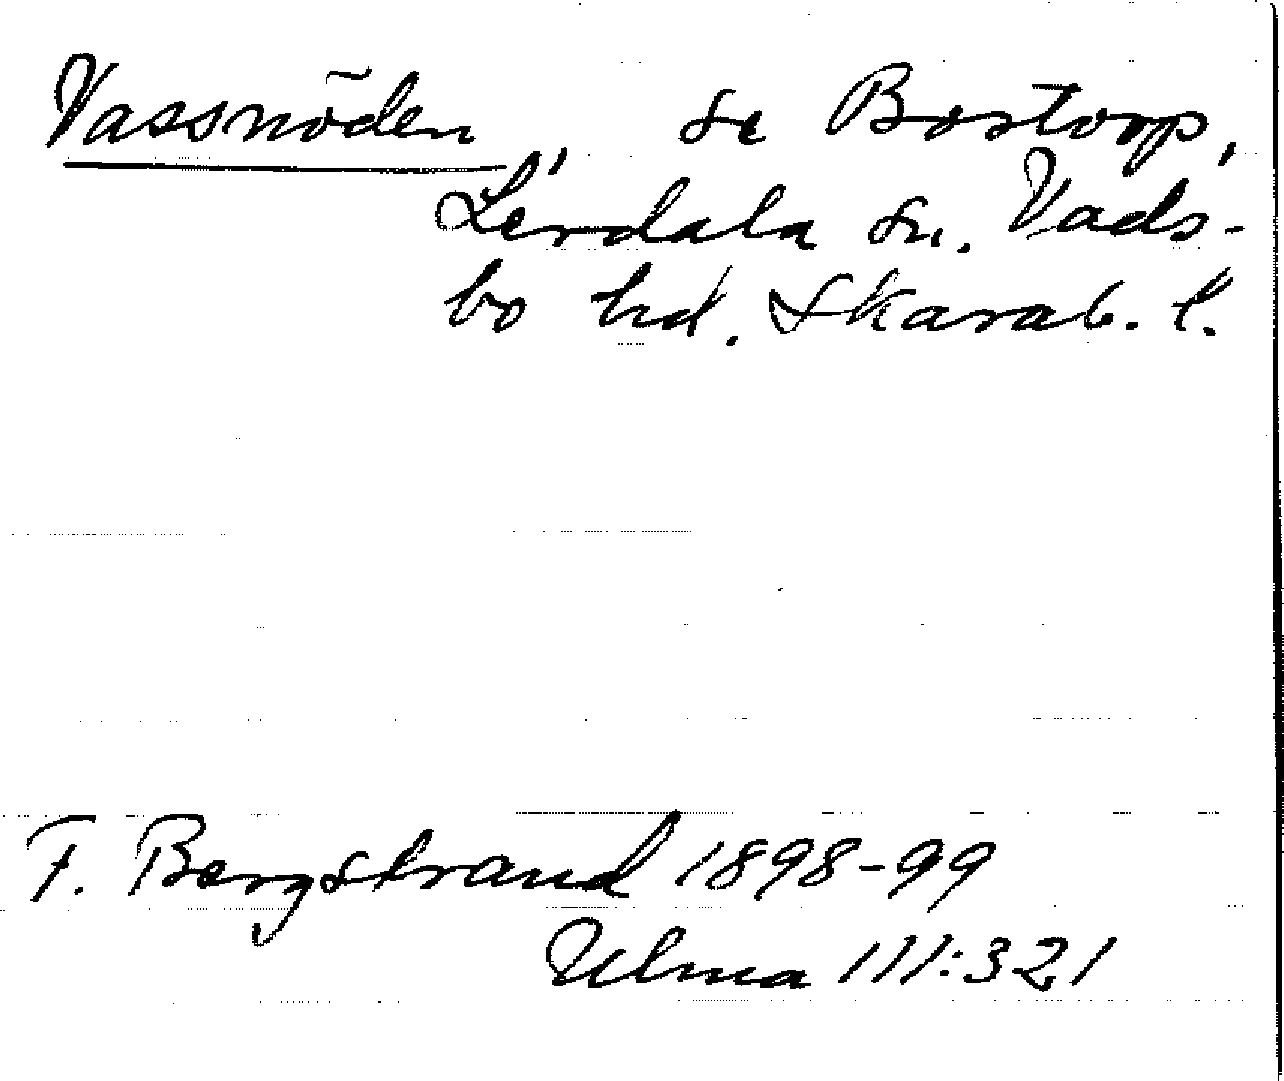 Vassnöden, se Bostorp,
Lerdala sn. Vads-
bo hd. Skarab. l.
F. Bergstrand 1898-99
Ulma 111:321